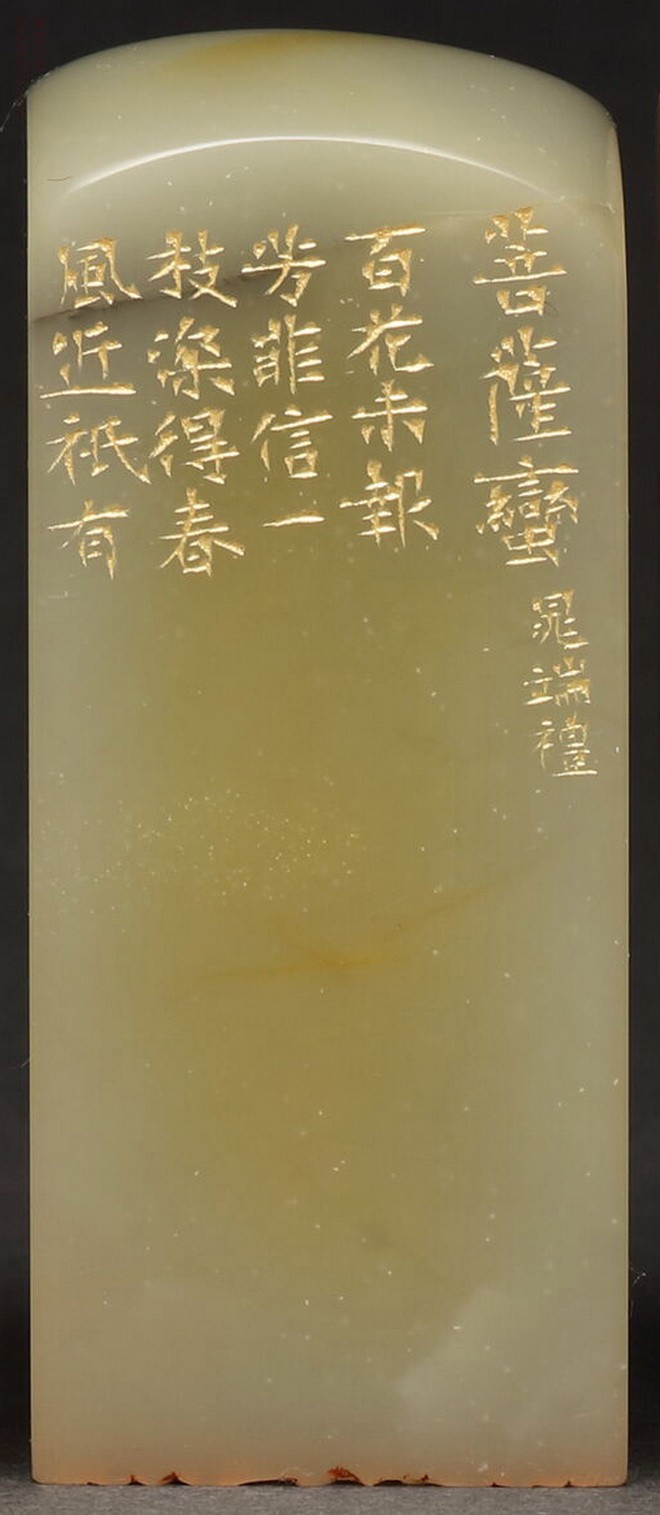 菩薩蠻
晁端禮
百花未報
芳菲信一
枝深得春
風近祇有